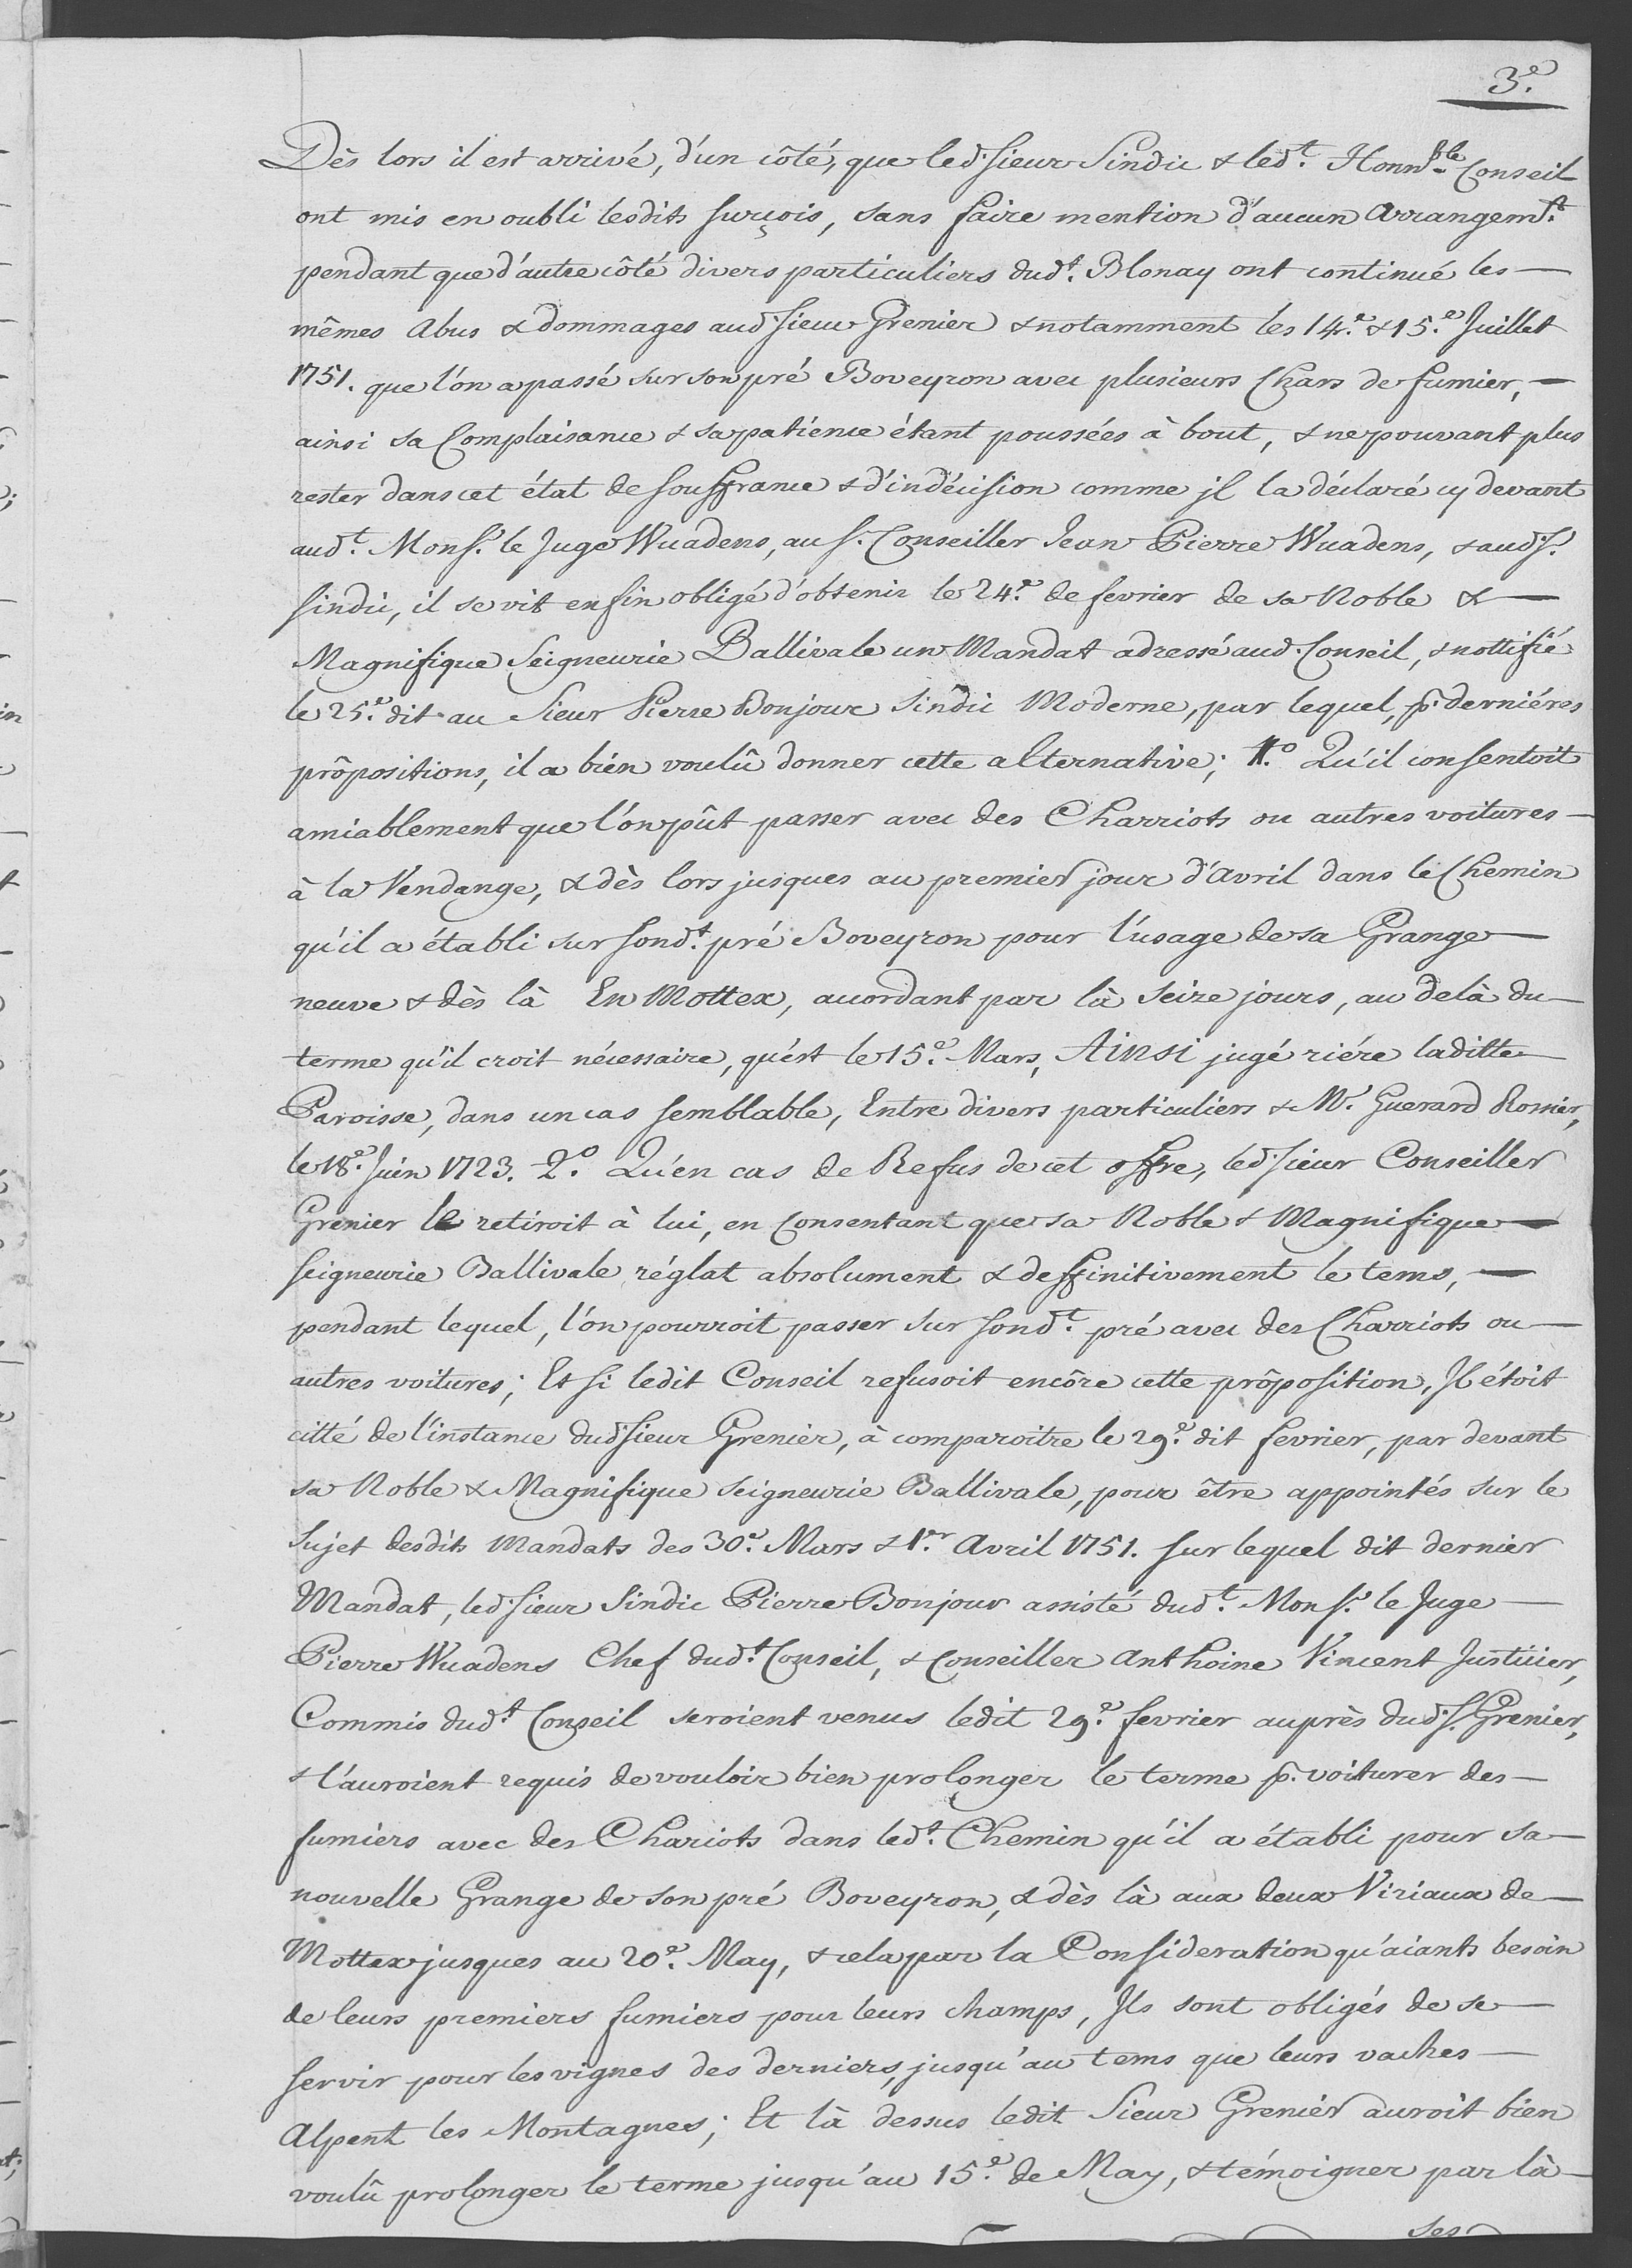 3.e
Dès lors il est arrivé, d'un côté, que led. sieur Sindic & led.t Honn.ble Conseil
ont mis en oubli lesdits surçois, sans faire mention d'aucun arrangem.t
pendant que d'autre côté divers particuliers dud.t Blonay ont continué les —
mêmes abus & dommages aud. sieur Grenier & notamment les 14.e & 15.e Juillet
1751. que l'on a passé sur son pré Boveyron avec plusieurs Chars de fumier, —
ainsi sa Complaisance & sa patience étant poussées à bout, & ne pouvant plus
rester dans cet état de souffrance & d'indécision comme jl la déclaré cy devant
aud.t Mons.r le Juge Wuadens, au s.r Conseiller Jean Pierre Wuadens, & aud. s.r
sindic, il se vit enfin obligé d'obtenir le 24.e de fevrier de sa Noble & —
Magnifique Seigneurie Ballivale un Mandat adressé aud. Conseil, & nottifié
le 25.e dit au Sieur Pierre Bonjour Sindic Moderne, par lequel, p.r derniéres
prôpositions, il a bien voulû donner cette alternative; 1.o Qu'il consentoit
amiablement que l'on pût passer avec des Charriots ou autres voitures —
à la Vendange, & dès lors jusques au premier jour d'avril dans le Chemin
qu'il a établi sur sond.t pré Boveyron pour l'usage de sa Grange —
neuve & dès là En Mottex, acordant par là seize jours, au delà du —
terme qu'il croit nécessaire, qu'est le 15.e Mars, Ainsi jugé riére laditte
Paroisse, dans un cas semblable, Entre divers particuliers & M.r Guerard Rosier,
le 18.e Juin 1723. 2.o Qu'en cas de Refus de cet offre, led. sieur Conseiller
Grenier le retiroit à lui, en consentant que sa Noble & Magnifique —
seigneurie Ballivale réglat absolument & deffinitivement le tems, —
pendant lequel, l'on pourroit passer sur sond.t pré avec des Charriots ou —
autres voitures; Et si ledit Conseil refusoit encôre cette prôposition, Jl étoit
citté de l'instance dud. sieur Grenier, à comparoitre le 29.e dit fevrier, par devant
sa Noble & Magnifique seigneurie Ballivale, pour être appointés sur le
sujet desdits Mandats des 30.e Mars & 1.er Avril 1751. sur lequel dit dernier
Mandat, led. sieur Sindic Pierre Bonjour assisté dud.t Mons.r le Juge —
Pierre Wuadens Chef dud.t Conseil, & Conseiller Anthoine Vincent Justicier,
Commis dud.t Conseil seroient venus ledit 29.e fevrier auprès dud. s.r Grenier,
& l'auroient requis de vouloir bien prolonger le terme p.r voiturer des —
fumiers avec des Chariots dans led.t Chemin qu'il a établi pour sa —
nouvelle Grange de son pré Boveyron, & dès là aux deux Viriaux de —
Mottex jusques au 20.e May, & cela par la Consideration qu'aiants besoin
de leurs premiers fumiers pour leurs champs, Jls sont obligés de se —
servir pour les vignes des derniers, jusqu'au tems que leurs vaches —
Alpent les Montagnes; Et là dessus ledit Sieur Grenier auroit bien
voulû prolonger le terme jusqu'au 15.e de May, & témoigner par là —
ses